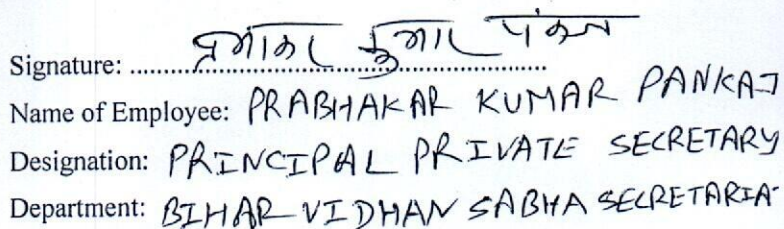 Signature: प्रभाकर कुमार पंकज
Name of Employee: PRABHAKAR KUMAR PANKAJ
Designation: PRINCIPAL PRIVATE SECRETARY
Department: BIHAR VIDHAN SABHA SECRETARIA